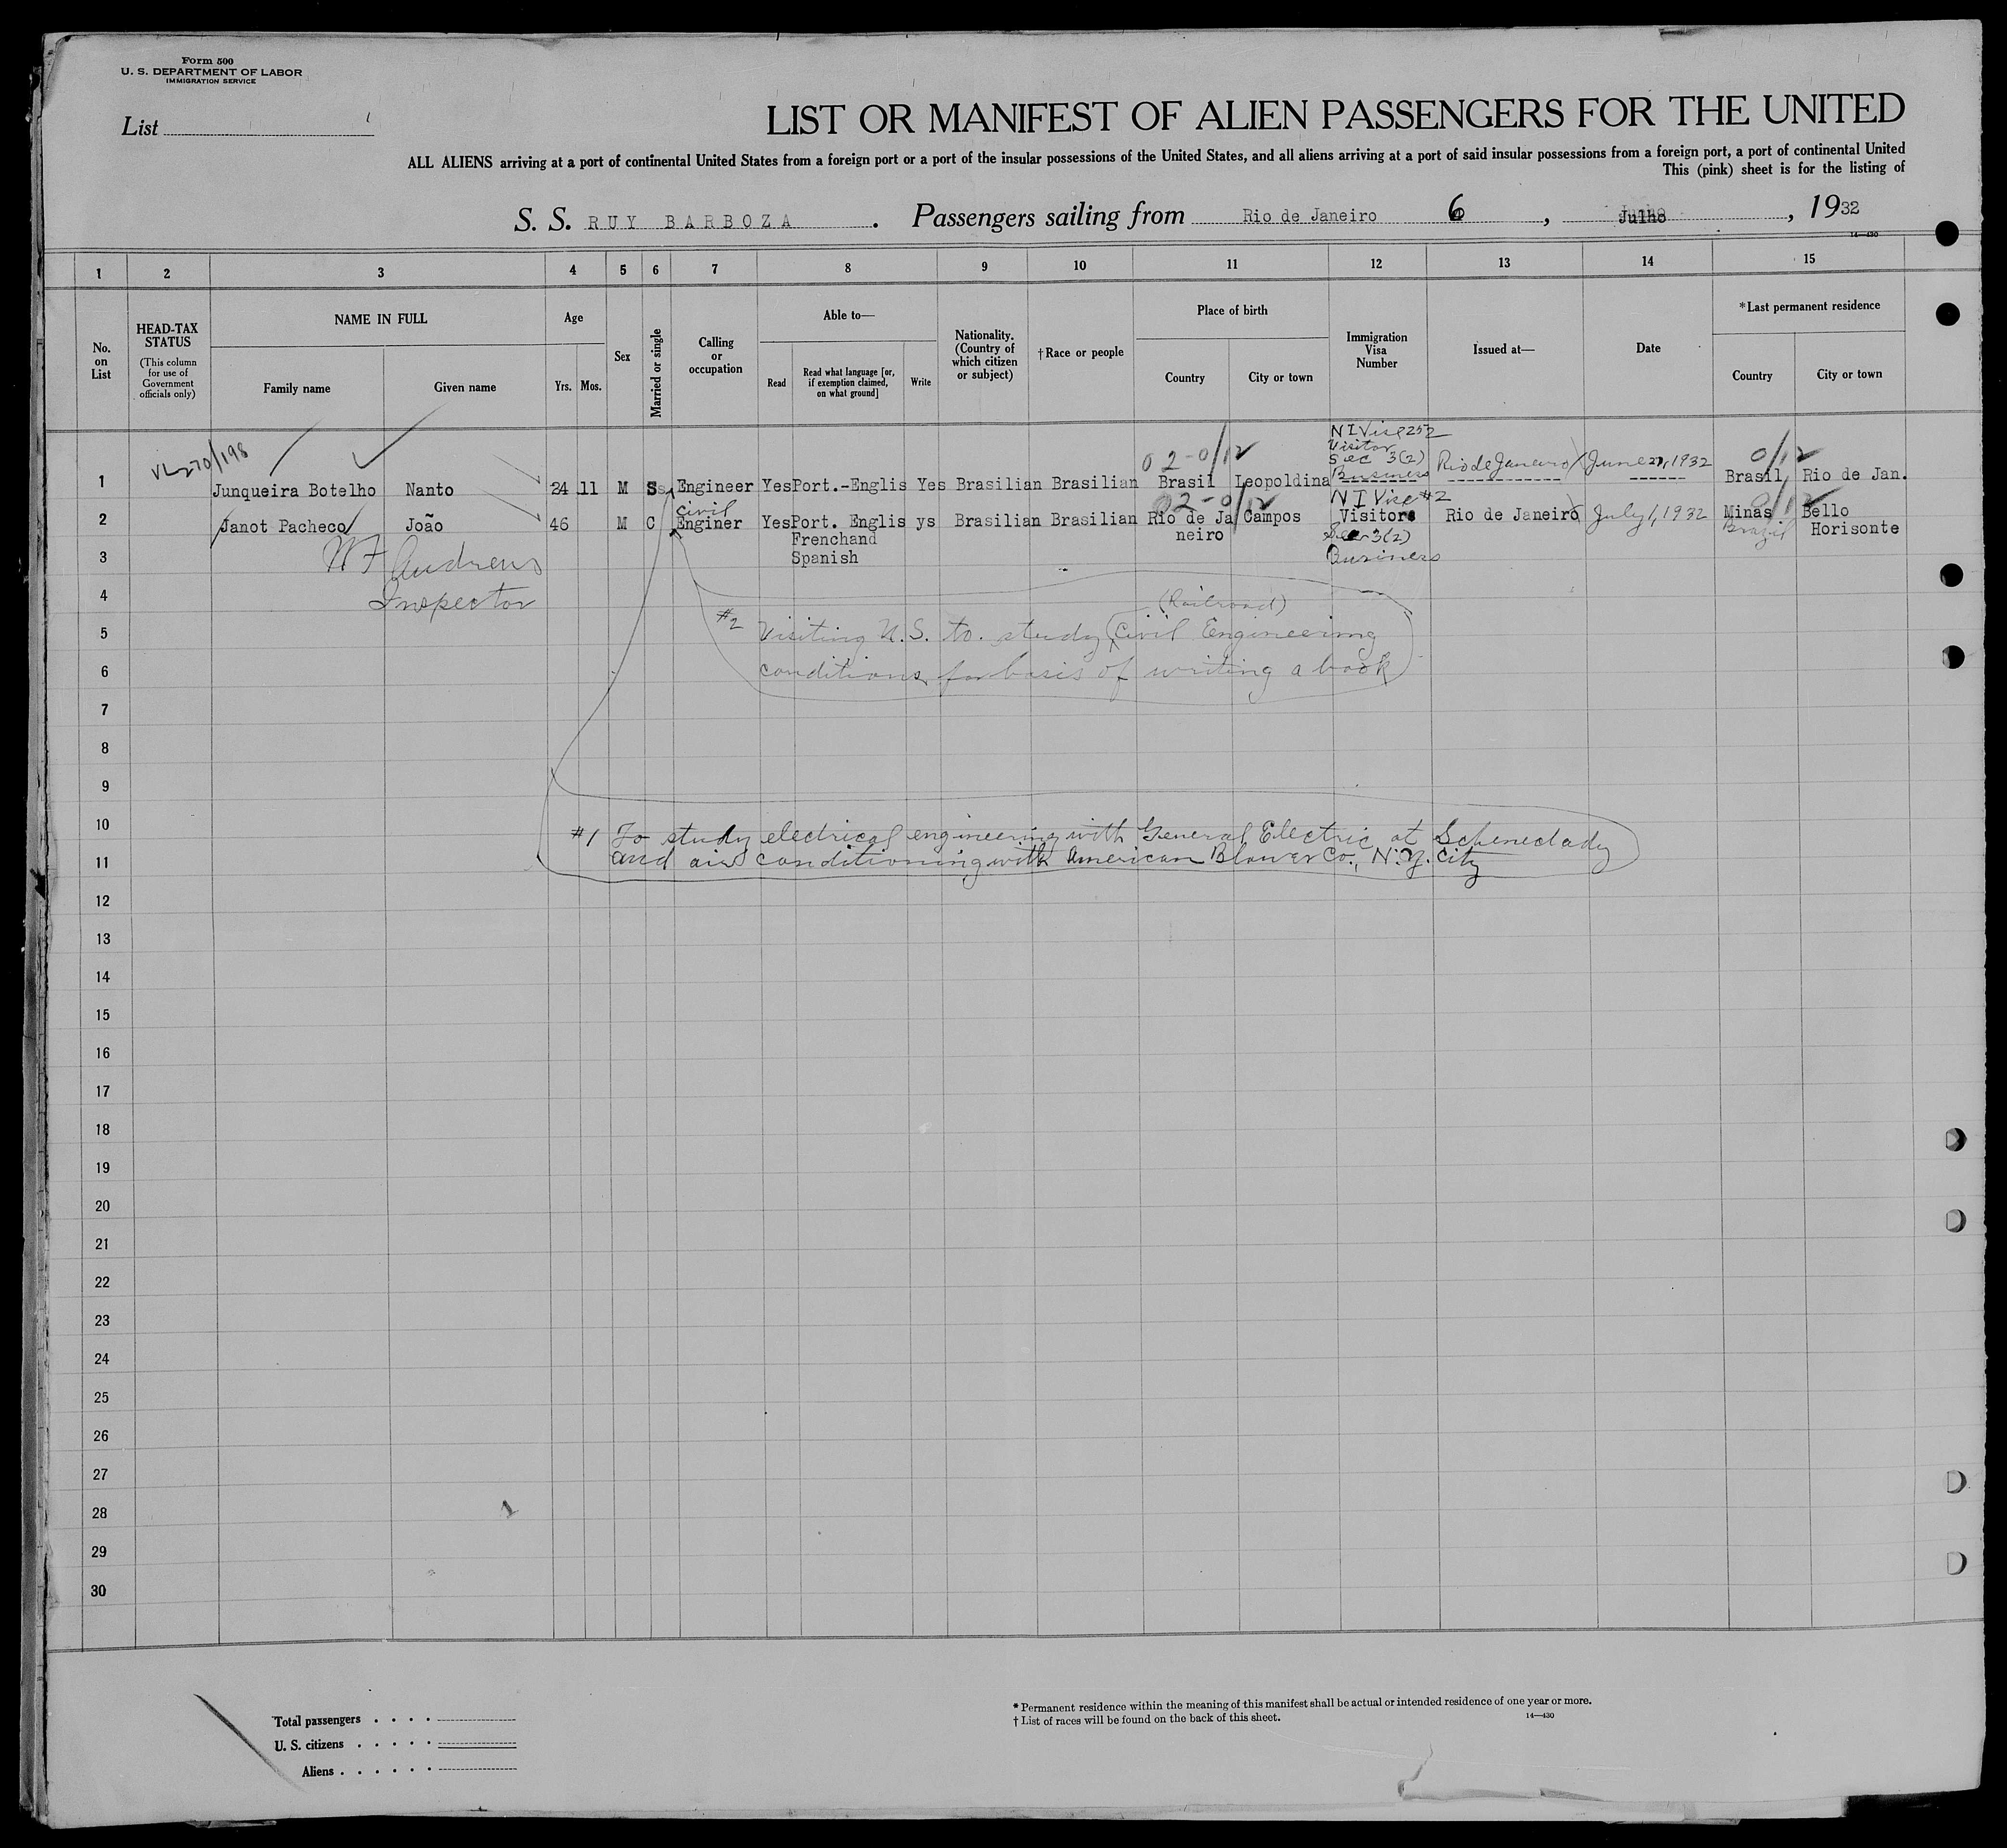 Form 500
U. S. DEPARTMENT OF LABOR
IMMIGRATION SERVICE
List
LIST OR MANIFEST OF ALIEN PASSENGERS FOR THE UNITED
ALL ALIENS arriving at a port of continental United States from a foreign port or a port of the insular possessions of the United States, and all aliens arriving at a port of said insular possessions from a foreign port, a port of continental United
This (pink) sheet is for the listing of
S. S. RUY BARBOZA . Passengers sailing from Rio de Janeiro 6 , Julho , 1932
14—430
1 2 3 4 5 6 7 8 9 10 11 12 13 14 15
No. on List
HEAD-TAX STATUS
(This column for use of Government officials only)
NAME IN FULL
Family name Given name
Age
Yrs. Mos.
Sex
Married or single
Calling or occupation
Able to—
Read
Read what language [or, if exemption claimed, on what ground]
Write
Nationality. (Country of which citizen or subject)
†Race or people
Place of birth
Country City or town
Immigration Visa Number
Issued at—
Date
*Last permanent residence
Country City or town
02-0/12
NI Vise 252
Visitor
Sec 3(2)
Business
0/12
1 Junqueira Botelho Nanto 24 11 M S Engineer Yes Port.-Englis Yes Brasilian Brasilian Brasil Leopoldina Rio de Janeiro June 27, 1932 Brasil, Rio de Jan.
02-0/12
NI Vise #2
0/12
Civil
2 Janot Pacheco João 46 M C Enginer Yes Port. Englis ys Brasilian Brasilian Rio de Ja Campos Visitor Rio de Janeiro July 1, 1932 Minas Bello
Frenchand neiro Sec 3(2) Brazil Horisonte
3 Spanish Business
W F Andrews
4 Inspector
(Railroad)
5 #2 Visiting U.S. to study Civil Engineering
6 conditions for basis of writing a book
7
8
9
10 #1 To study electrical engineering with General Electric at Schenectady
11 and air conditioning with American Blower Co., N.Y. City
12
13
14
15
16
17
18
19
20
21
22
23
24
25
26
27
28
29
30
Total passengers . . . .
U. S. citizens . . . . .
Aliens . . . . . .
* Permanent residence within the meaning of this manifest shall be actual or intended residence of one year or more.
† List of races will be found on the back of this sheet.
14—430